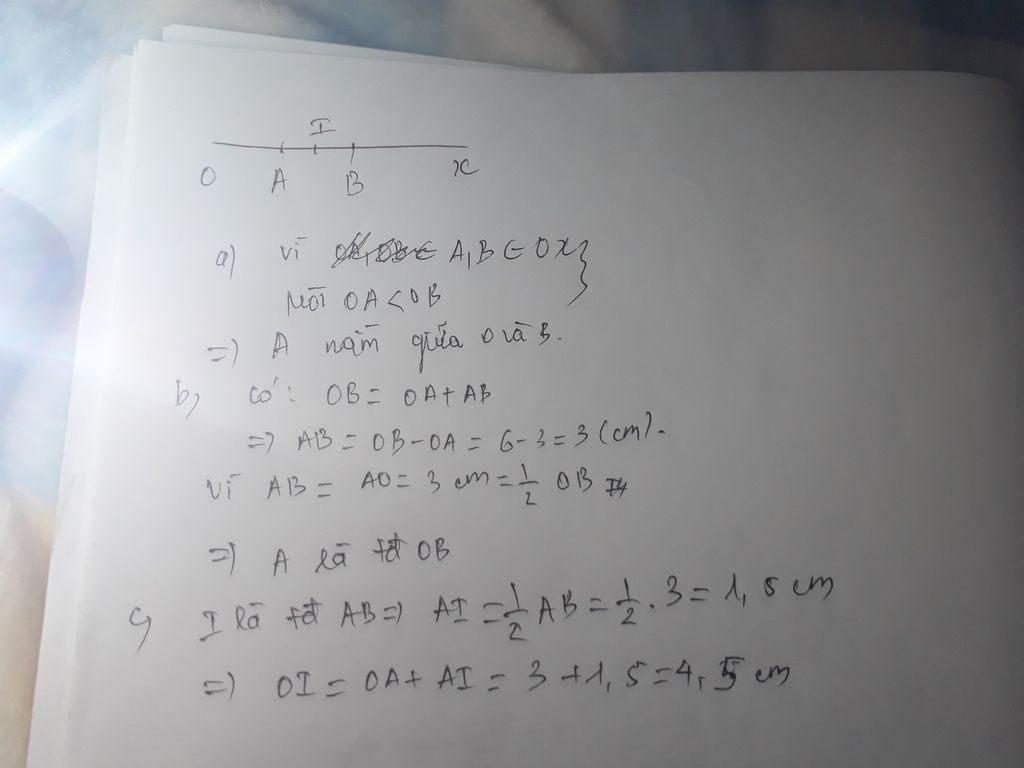 I
O A B x
a) Vì A, B ∈ Ox }
Mà OA < OB
=> A nằm giữa O và B.
b, Có: OB = OA + AB
=> AB = OB - OA = 6 - 3 = 3 (cm).
Vì AB = AO = 3 cm = 1/2 OB
=> A là tđ OB
c, I là tđ AB => AI = 1/2 AB = 1/2 . 3 = 1,5 cm
=> OI = OA + AI = 3 + 1,5 = 4,5 cm